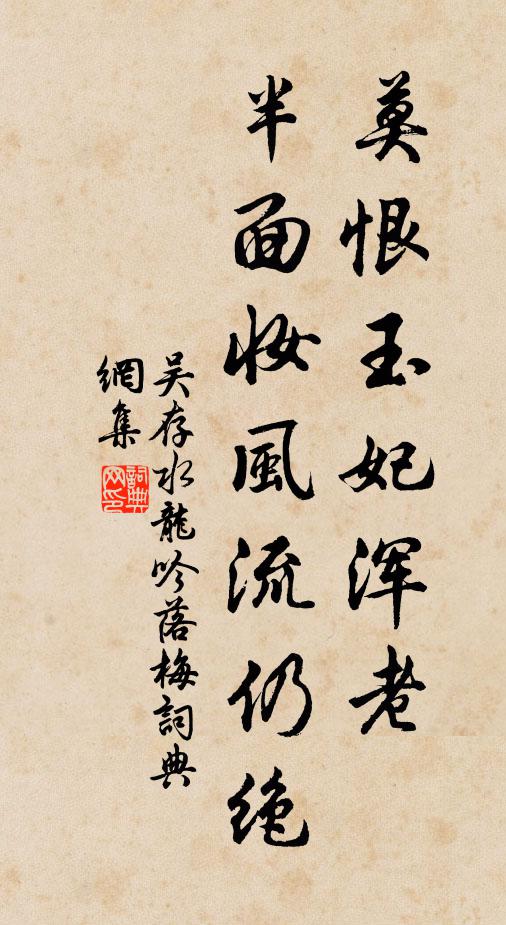 莫恨玉妃浑老
半面妆風流仍绝
吴存水龍吟落梅詞典
網集
詞典網印